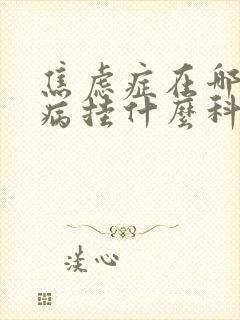 焦虑症在哪
病挂什麼科
淡心